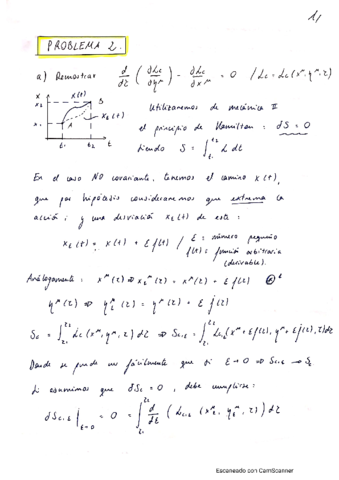 1/
PROBLEMA 2.
a) Demostrar d/dτ (∂Lc/∂η^μ) - ∂Lc/∂x^μ = 0 / Lc = Lc(x^μ, η^μ, τ)
x x(t)
x₂ B
x₁ A x_ε(t)
t₁ t₂ t
Utilizaremos de mecánica II
el principio de Hamilton: dS = 0
siendo S = ∫_{t₁}^{t₂} L dt
En el caso NO covariante, tenemos el camino x(t),
que por hipótesis consideraremos que extrema la
acción; y una desviación x_ε(t) de este:
x_ε(t) = x(t) + ε f(t) / ε = número pequeño
f(t) = función arbitraria
(derivable).
Análogamente: x^μ(τ) ⇒ x_ε^μ(τ) = x^μ(τ) + ε f(τ)
η^μ(τ) ⇒ η_ε^μ(τ) = η^μ(τ) + ε ḟ(τ)
Sc = ∫_{τ₁}^{τ₂} Lc(x^μ, η^μ, τ) dτ ⇒ Sc,ε = ∫_{τ₁}^{τ₂} Lc,ε(x^μ + εf(τ), η^μ + εḟ(τ), τ) dτ
Donde se puede ver fácilmente que si ε→0 ⇒ Sc,ε → Sc
Si asumimos que dSc = 0, debe cumplirse:
dSc,ε|_{ε→0} = 0 = ∫_{τ₁}^{τ₂} d/dε (Lc,ε(x_ε^μ, η_ε^μ, τ)) dτ
Escaneado con CamScanner